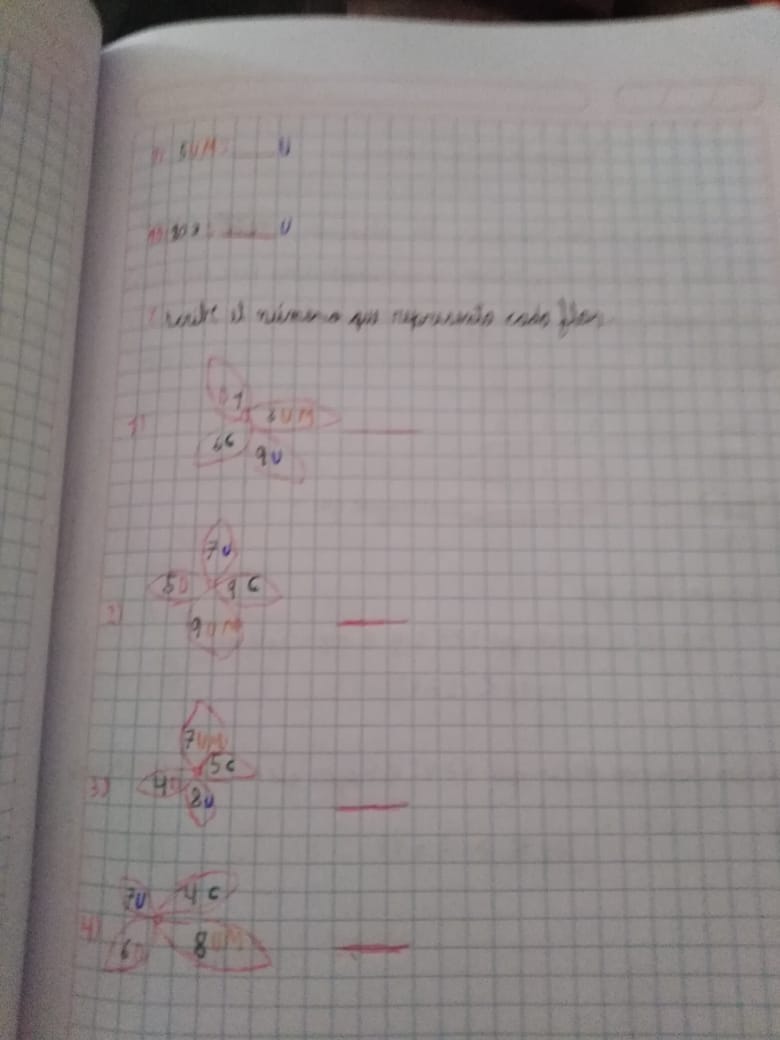 5UM= ____ U
____ U
Escribe el número que representa cada flor.
1)
UM
9U
____
2)
7U
5D
9C
9UM
____
3)
7UM
5C
4D
8U
____
4)
7U
4C
6D
8UM
____